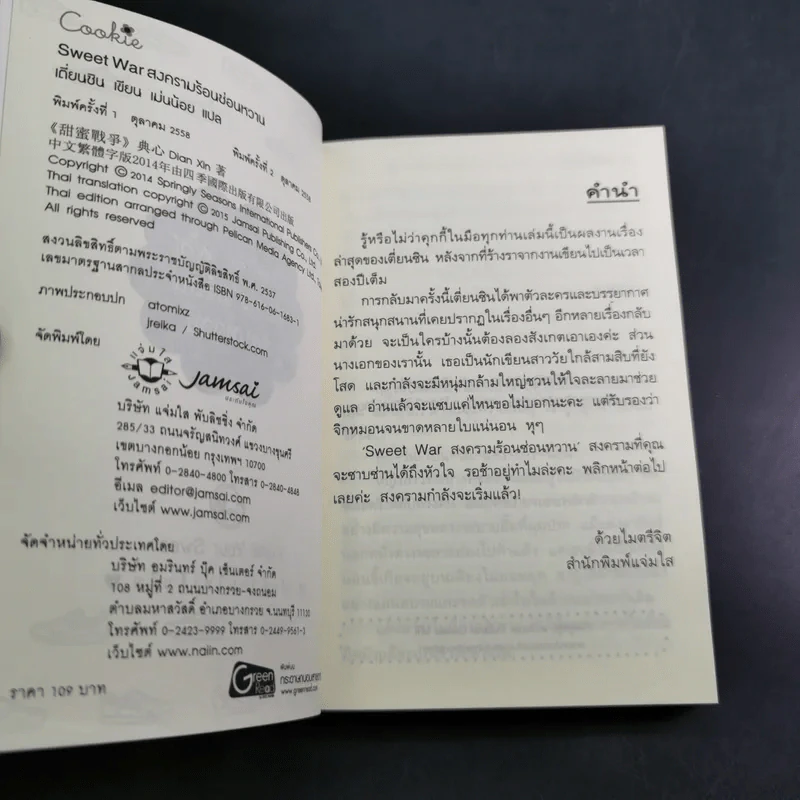 Cookie
Sweet War สงครามร้อนซ่อนหวาน
เตี่ยนซิน เขียน เม่นน้อย แปล
พิมพ์ครั้งที่ 1 ตุลาคม 2558 พิมพ์ครั้งที่ 2 ตุลาคม 2558
《甜蜜戰爭》典心 Dian Xin 著
中文繁體字版2014年由四季國際出版有限公司出版
Copyright © 2014 Springly Seasons International Publishers Co.,
Thai translation copyright © 2015 Jamsai Publishing Co., Ltd.
Thai edition arranged through Pelican Media Agency Ltd.,
All rights reserved
สงวนลิขสิทธิ์ตามพระราชบัญญัติลิขสิทธิ์ พ.ศ. 2537
เลขมาตรฐานสากลประจำหนังสือ ISBN 978-616-06-1683-1
ภาพประกอบปก atomixz
jreika / Shutterstock.com
จัดพิมพ์โดย
แจ่มใส
Jamsai
Jamsai
บริษัท แจ่มใส พับลิชชิ่ง จำกัด
285/33 ถนนจรัญสนิทวงศ์ แขวงบางขุนศรี
เขตบางกอกน้อย กรุงเทพฯ 10700
โทรศัพท์ 0-2840-4800 โทรสาร 0-2840-4848
อีเมล editor@jamsai.com
เว็บไซต์ www.jamsai.com
จัดจำหน่ายทั่วประเทศโดย
บริษัท อมรินทร์ บุ๊ค เซ็นเตอร์ จำกัด
108 หมู่ที่ 2 ถนนบางกรวย-จงถนอม
ตำบลมหาสวัสดิ์ อำเภอบางกรวย จ.นนทบุรี 11130
โทรศัพท์ 0-2423-9999 โทรสาร 0-2449-9561-3
เว็บไซต์ www.naiin.com
Green Read
ราคา 109 บาท
คำนำ
รู้หรือไม่ว่าคุกกี้ในมือทุกท่านเล่มนี้เป็นผลงานเรื่อง
ล่าสุดของเตี่ยนซิน หลังจากที่ร้างราจากงานเขียนไปเป็นเวลา
สองปีเต็ม
การกลับมาครั้งนี้เตี่ยนซินได้พาตัวละครและบรรยากาศ
น่ารักสนุกสนานที่เคยปรากฏในเรื่องอื่นๆ อีกหลายเรื่องกลับ
มาด้วย จะเป็นใครบ้างนั้นต้องลองสังเกตเอาเองค่ะ ส่วน
นางเอกของเรานั้น เธอเป็นนักเขียนสาววัยใกล้สามสิบที่ยัง
โสด และกำลังจะมีหนุ่มกล้ามใหญ่ชวนให้ใจละลายมาช่วย
ดูแล อ่านแล้วจะแซบแค่ไหนขอไม่บอกนะคะ แต่รับรองว่า
จิกหมอนจนขาดหลายใบแน่นอน หุๆ
'Sweet War สงครามร้อนซ่อนหวาน' สงครามที่คุณ
จะซาบซ่านได้ถึงหัวใจ รอช้าอยู่ทำไมล่ะคะ พลิกหน้าต่อไป
เลยค่ะ สงครามกำลังจะเริ่มแล้ว!
ด้วยไมตรีจิต
สำนักพิมพ์แจ่มใส